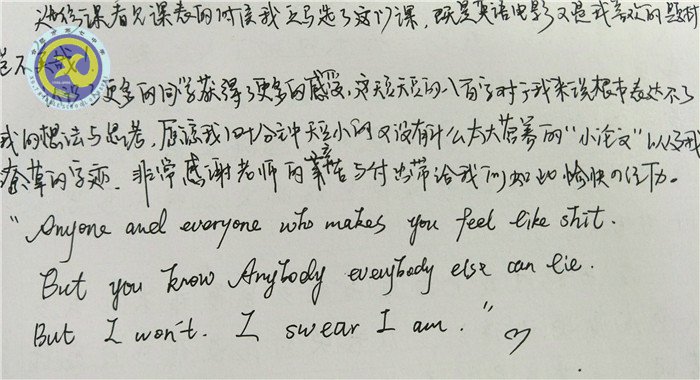 选修课看见课表的时候我立马选了这门课,既是英语电影又是我喜欢的题材
岂不美哉!
更多的同学获得了更多的感受,这短短的八百字对于我来说根本表达不了
我的想法与思考,原谅我四十分钟短小的又没有什么太大营养的“小论文”以及我
潦草的字迹,非常感谢老师的辛苦与付出带给我们如此愉快的经历。
"Anyone and everyone who makes you feel like shit.
But you know Anybody everybody else can lie.
But I won't. I swear I am."